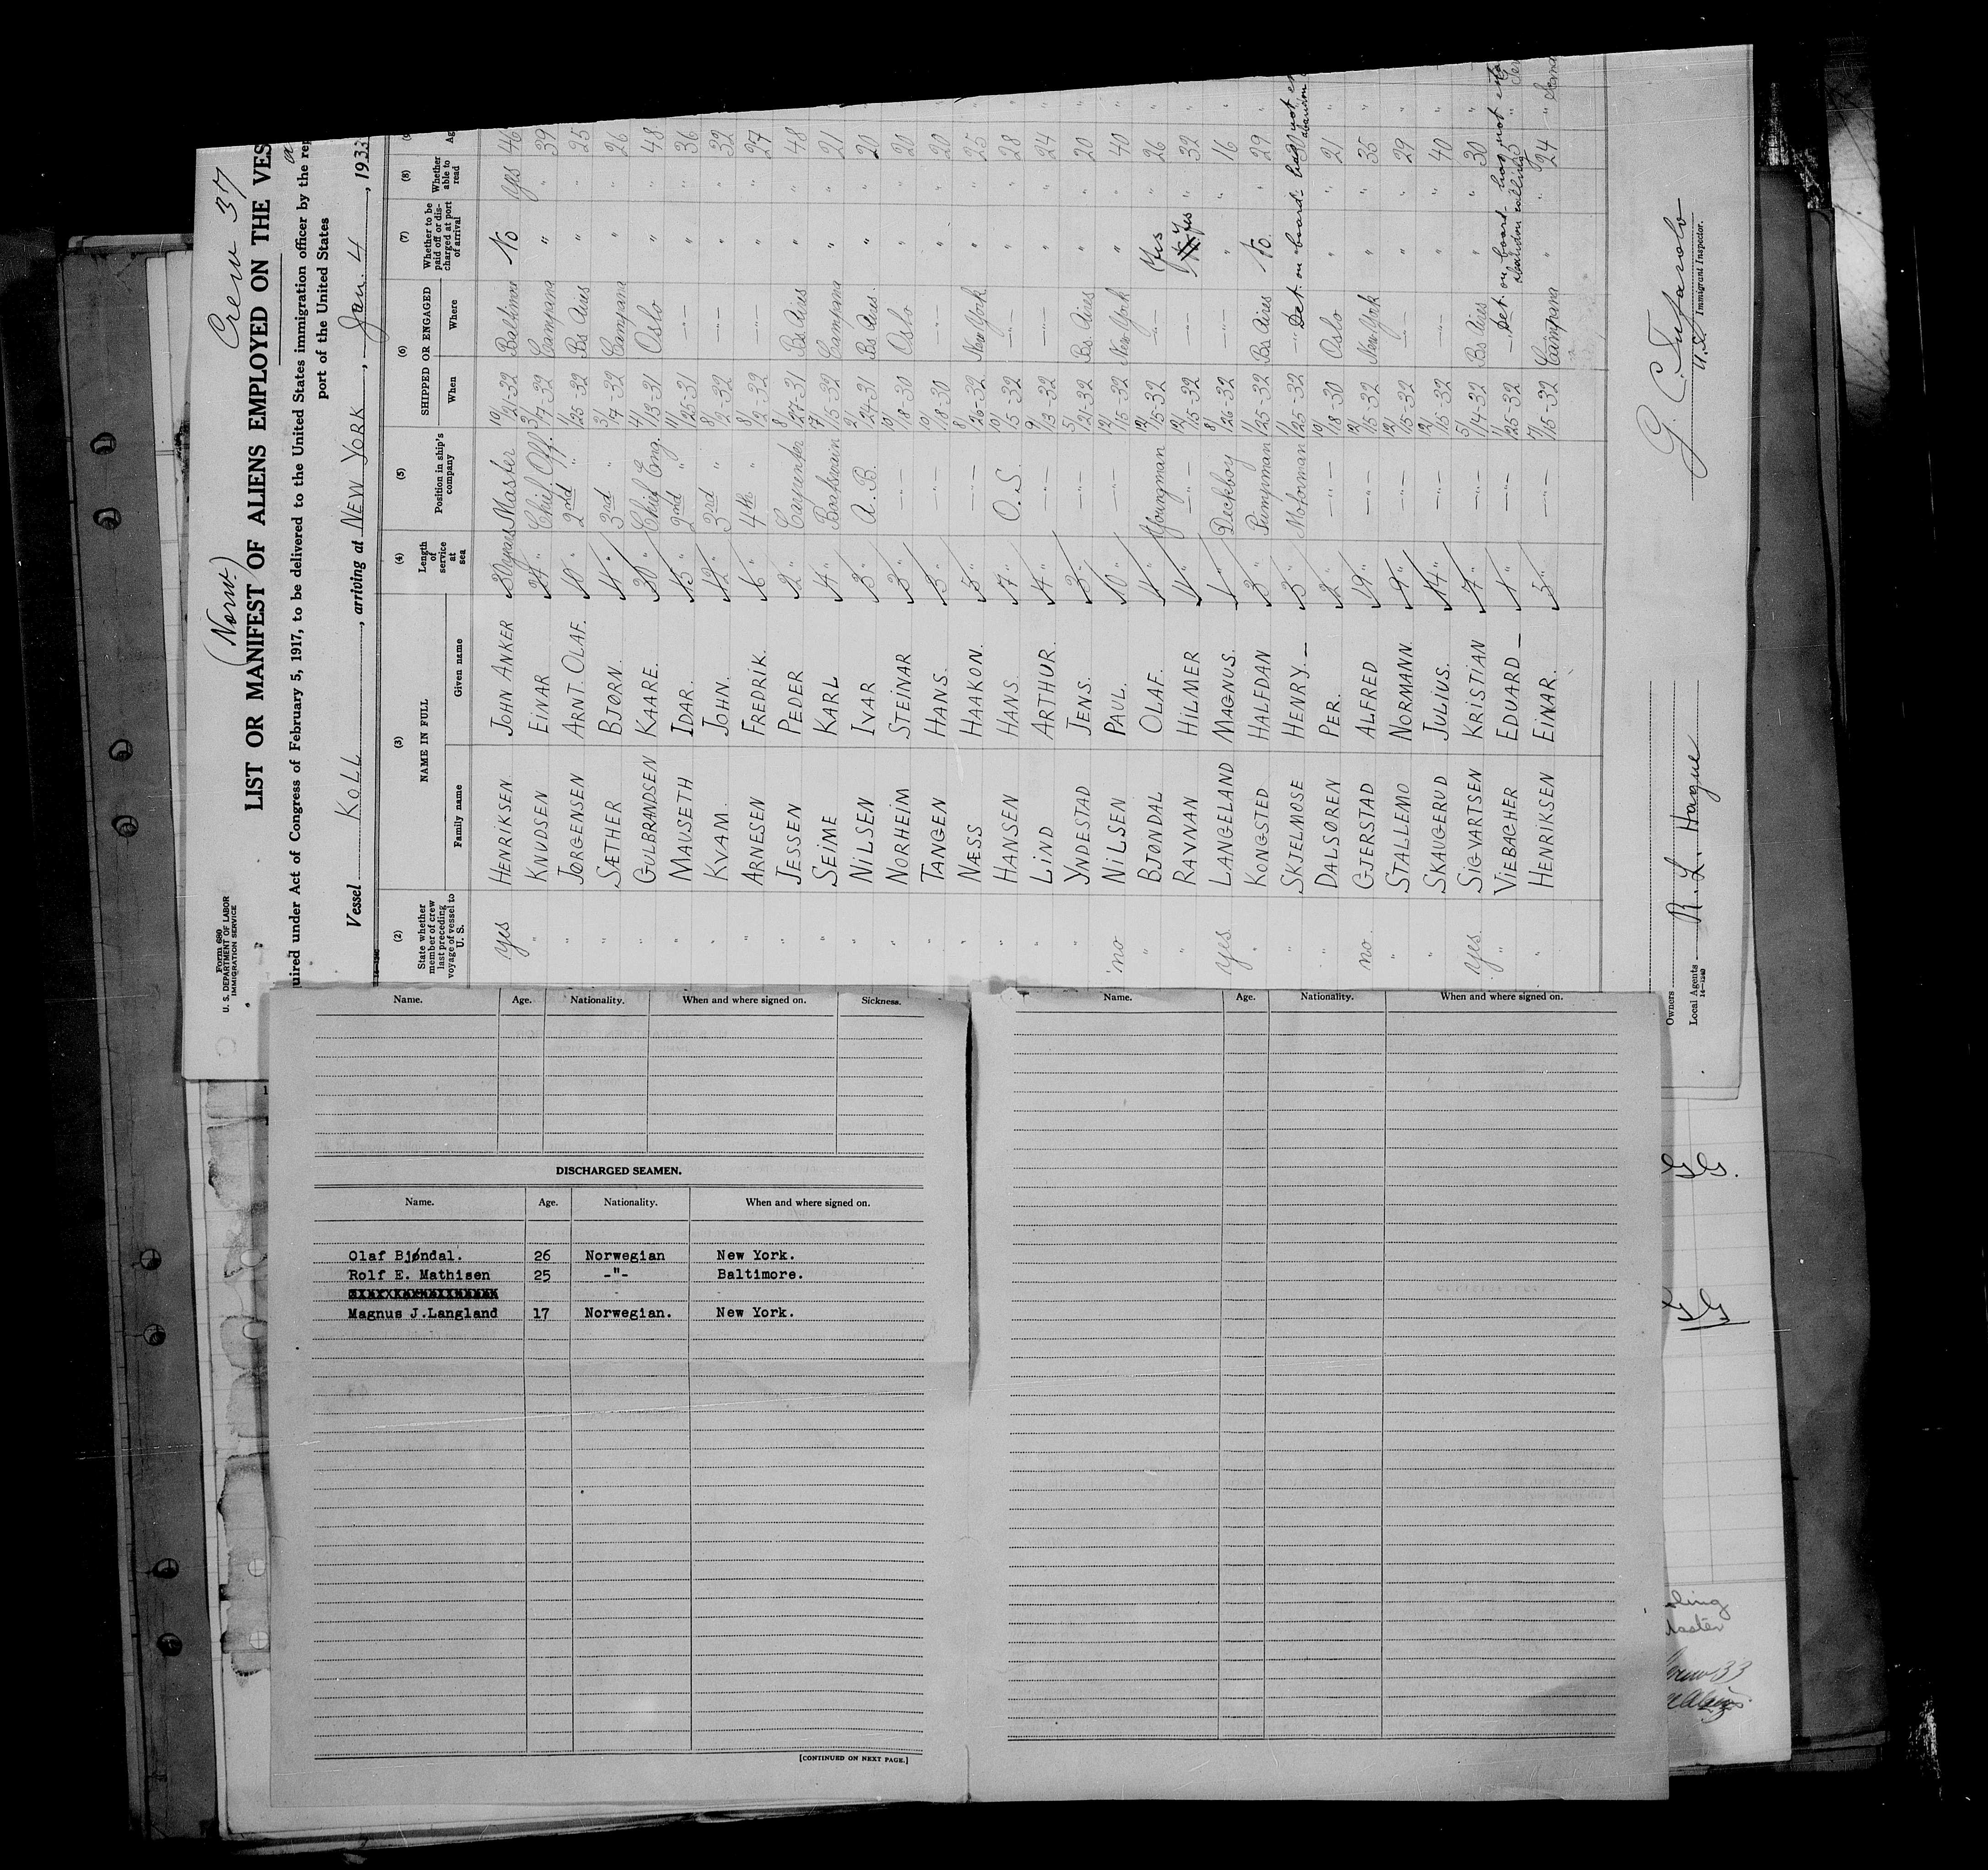 Form 680
U. S. DEPARTMENT OF LABOR
IMMIGRATION SERVICE
(Norw.)
Crew 37
LIST OR MANIFEST OF ALIENS EMPLOYED ON THE VES
uired under Act of Congress of February 5, 1917, to be delivered to the United States immigration officer by the rep
port of the United States
Vessel KOLL, arriving at NEW YORK, Jan. 4, 1933
(2) State whether member of crew last preceding voyage of vessel to U. S.
(3) NAME IN FULL
Family name Given name
(4) Length of service at sea
(5) Position in ship's company
(6) SHIPPED OR ENGAGED
When Where
(7) Whether to be paid off or discharged at port of arrival
(8) Whether able to read
Ag
yes HENRIKSEN JOHN ANKER 30 years Master 10/21-32 Baltimore No yes 46
" KNUDSEN EINAR 24 " Chief Off. 3/17-32 Campana " " 39
" JØRGENSEN ARNT OLAF. 10 " 2nd " 1/25-32 Bs Aires " " 25
" SÆTHER BJØRN. 4 " 3rd " 3/17-32 Campana " " 26
" GULBRANDSEN KAARE. 30 " Chief Eng. 4/13-31 Oslo " " 48
" MAUSETH IDAR. 15 " 2nd " 11/25-31 -"- " " 36
" KVAM. JOHN. 12 " 3rd " 8/12-32 -"- " " 32
" ARNESEN FREDRIK. 6 " 4th " 8/12-32 -"- " " 27
" JESSEN PEDER 2 " Carpenter 8/27-31 Bs Aires " " 48
" SEIME KARL 4 " Boatswain 7/15-32 Campana " " 21
" NILSEN IVAR 3 " A. B. 2/24-31 Bs Aires. " " 20
" NORHEIM STEINAR 3 " -"- 10/18-30 Oslo " " 20
" TANGEN HANS. 3 " -"- 10/18-30 -"- " " 20
" NÆSS HAAKON. 5 " -"- 8/26-32 New York " " 25
" HANSEN HANS. 7 " O. S. 10/15-32 -"- " " 28
" LIND ARTHUR. 4 " -"- 9/13-32 -"- " " 24
" YNDESTAD JENS. 3 " -"- 5/21-32 Bs Aires " " 20
no NILSEN PAUL. 10 " -"- 12/15-32 New York " " 40
" BJØNDAL OLAF. 4 " Youngman 12/15-32 -"- Yes " 26
" RAVNAN HILMER 4 " -"- 12/15-32 -"- yes " 32
yes. LANGELAND MAGNUS. 1 " Deckboy 8/26-32 -"- " " 16
" KONGSTED HALFDAN 3 " Pumpman 11/25-32 Bs Aires No. " 29
" SKJELMOSE HENRY. — 3 " Motorman 11/25-32 -"- Det. on board has not
" DALSØREN PER. 2 " -"- 10/18-30 Oslo " " 21
no. GJERSTAD ALFRED 19 " -"- 12/15-32 New York " " 35
" STALLEMO NORMANN. 9 " -"- 12/15-32 -"- " " 29
" SKAUGERUD JULIUS. 14 " -"- 12/15-32 -"- " " 40
yes. SIGVARTSEN KRISTIAN 7 " -"- 5/14-32 Bs Aires " " 30
" VIEBACHER EDUARD — 1 " -"- 11/25-32 -"- Det. on board has not
abandon calling
" HENRIKSEN EINAR. 5 " -"- 7/15-32 Campana " " 24
Owners
Local Agents R. L. Hague
14—1240
G. C. Tufarolo
U.S. Immigrant Inspector.
Name. Age. Nationality. When and where signed on. Sickness.
DISCHARGED SEAMEN.
Name. Age. Nationality. When and where signed on.
Olaf Bjøndal. 26 Norwegian New York.
Rolf E. Mathisen 25 -"- Baltimore.
Magnus J.Langland 17 Norwegian. New York.
[CONTINUED ON NEXT PAGE.]
Name. Age. Nationality. When and where signed on.